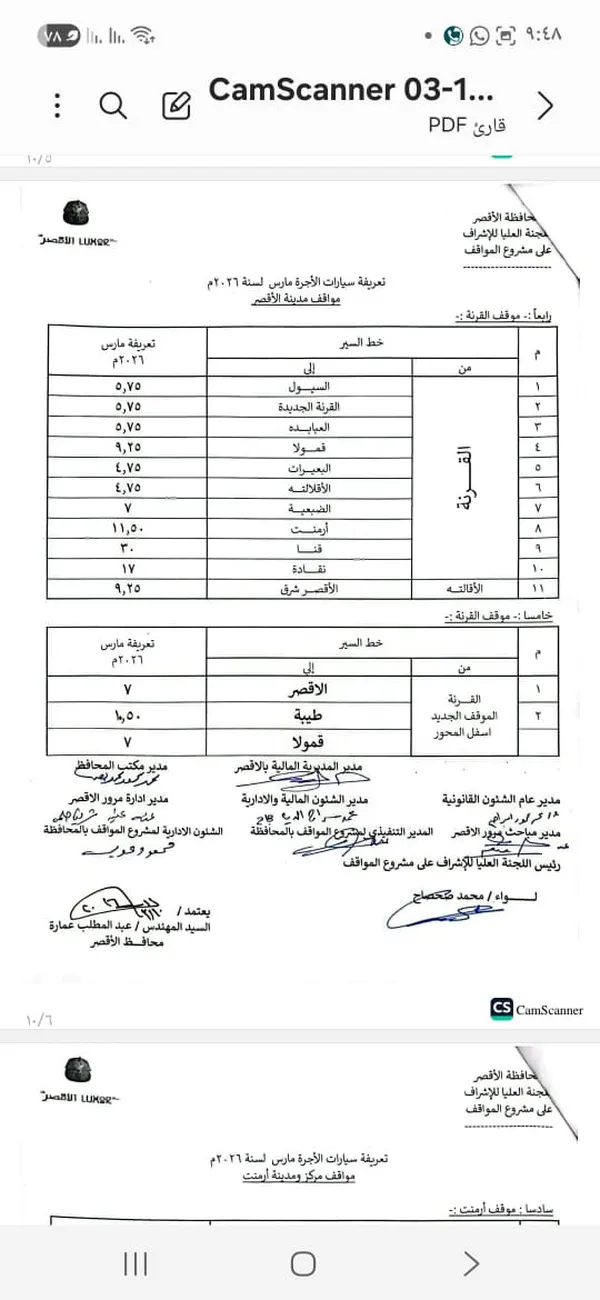 ٩:٤٨
٧٨
CamScanner 03-1...
قارئ PDF
١٠/٥
محافظة الأقصر
اللجنة العليا للإشراف
على مشروع المواقف
الأقصر LUXOR
تعريفة سيارات الأجرة مارس لسنة ٢٠٢٦م
مواقف مدينة الأقصر
رابعاً :- موقف القرنة :-
م خط السير تعريفة مارس ٢٠٢٦م
من إلى
القرنة
١ السيول ٥,٧٥
٢ القرنة الجديدة ٥,٧٥
٣ العبايده ٥,٧٥
٤ قمولا ٩,٢٥
٥ البعيرات ٤,٧٥
٦ الأقلالته ٤,٧٥
٧ الضبعية ٧
٨ أرمنت ١١,٥٠
٩ قنا ٣٠
١٠ نقادة ١٧
١١ الأقالته الأقصر شرق ٩,٢٥
خامسا :- موقف القرنة :-
م خط السير تعريفة مارس ٢٠٢٦م
من إلى
القرنة
الموقف الجديد
اسفل المحور
١ الاقصر ٧
٢ طيبة
قمولا ٧
مدير عام الشئون القانونية
مدير المديرية المالية بالاقصر
مدير مكتب المحافظ
مدير مباحث مرور الاقصر
مدير الشئون المالية والادارية
مدير ادارة مرور الاقصر
المدير التنفيذي لمشروع المواقف بالمحافظة
الشئون الادارية لمشروع المواقف بالمحافظة
رئيس اللجنة العليا للإشراف على مشروع المواقف
لـواء / محمد صحصاح
يعتمد /
السيد المهندس / عبد المطلب عمارة
محافظ الأقصر
١٠/٦
CS CamScanner
محافظة الأقصر
اللجنة العليا للإشراف
على مشروع المواقف
الأقصر LUXOR
تعريفة سيارات الأجرة مارس لسنة ٢٠٢٦م
مواقف مركز ومدينة أرمنت
سادسا : موقف أرمنت :-